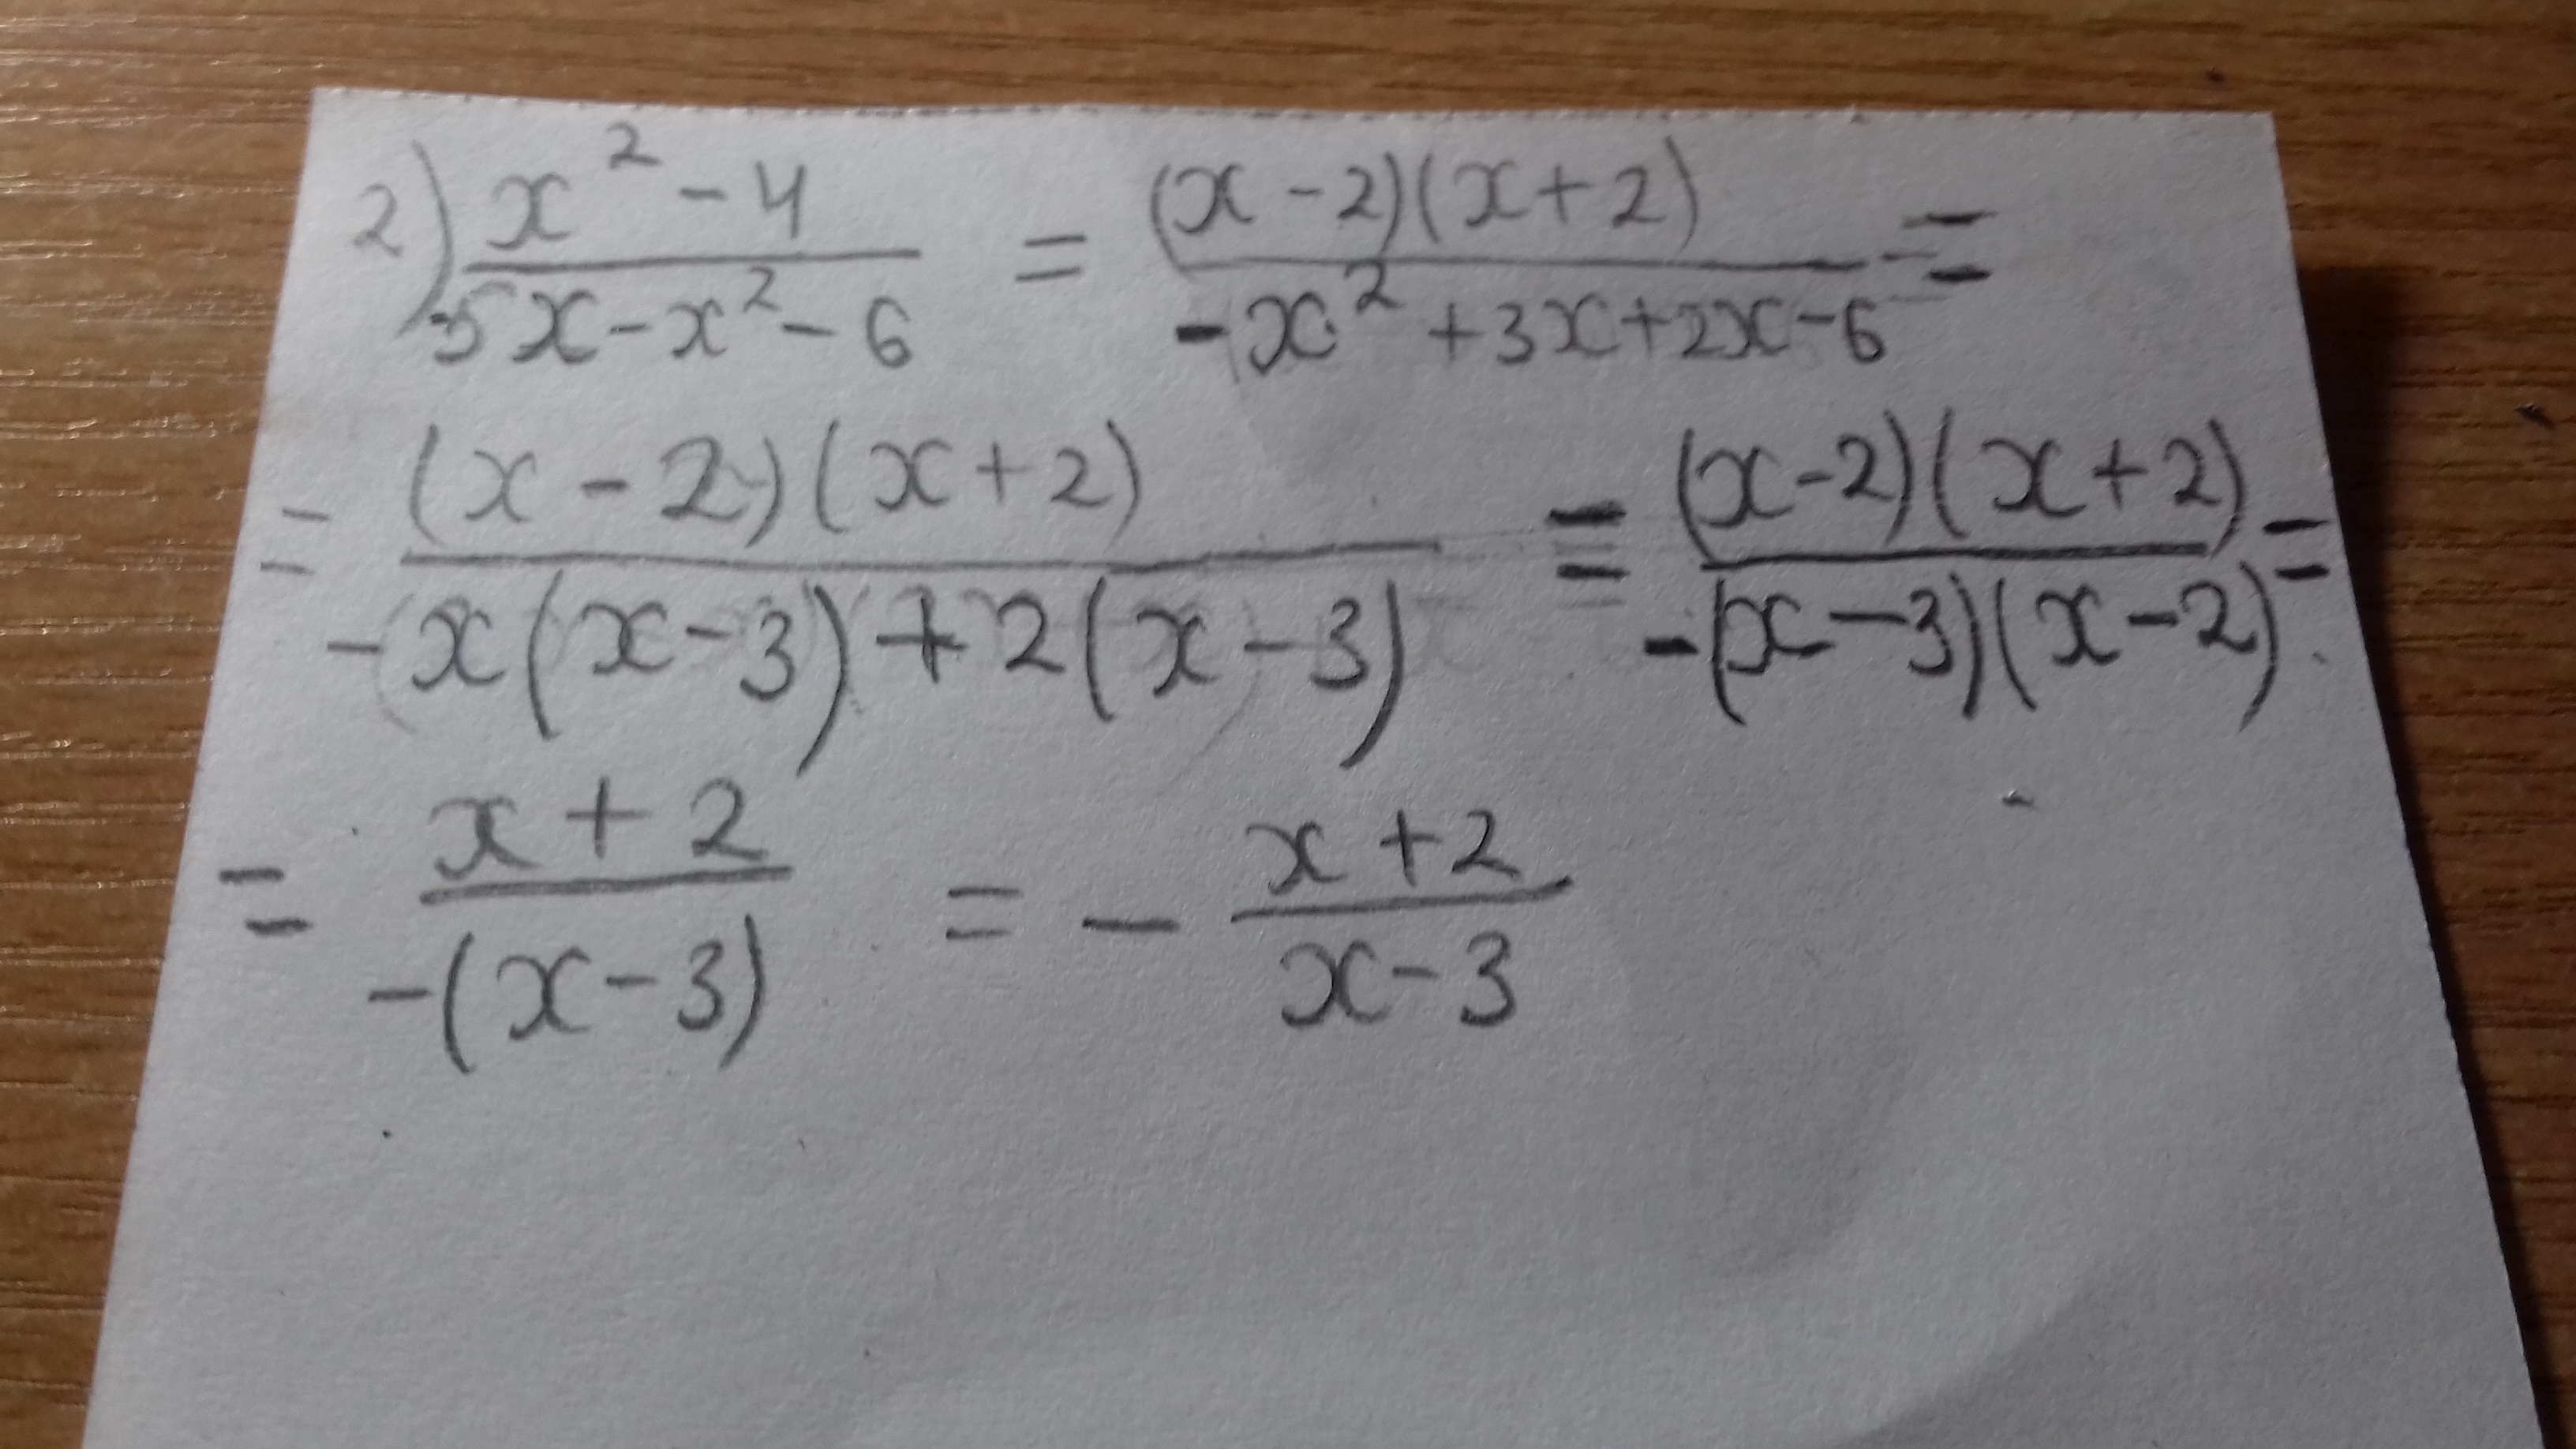 2) (x² - 4)/(5x - x² - 6) = ((x - 2)(x + 2))/(-x² + 3x + 2x - 6) =
= ((x - 2)(x + 2))/(-x(x - 3) + 2(x - 3)) = ((x - 2)(x + 2))/(-(x - 3)(x - 2)) =
= (x + 2)/(-(x - 3)) = - (x + 2)/(x - 3)